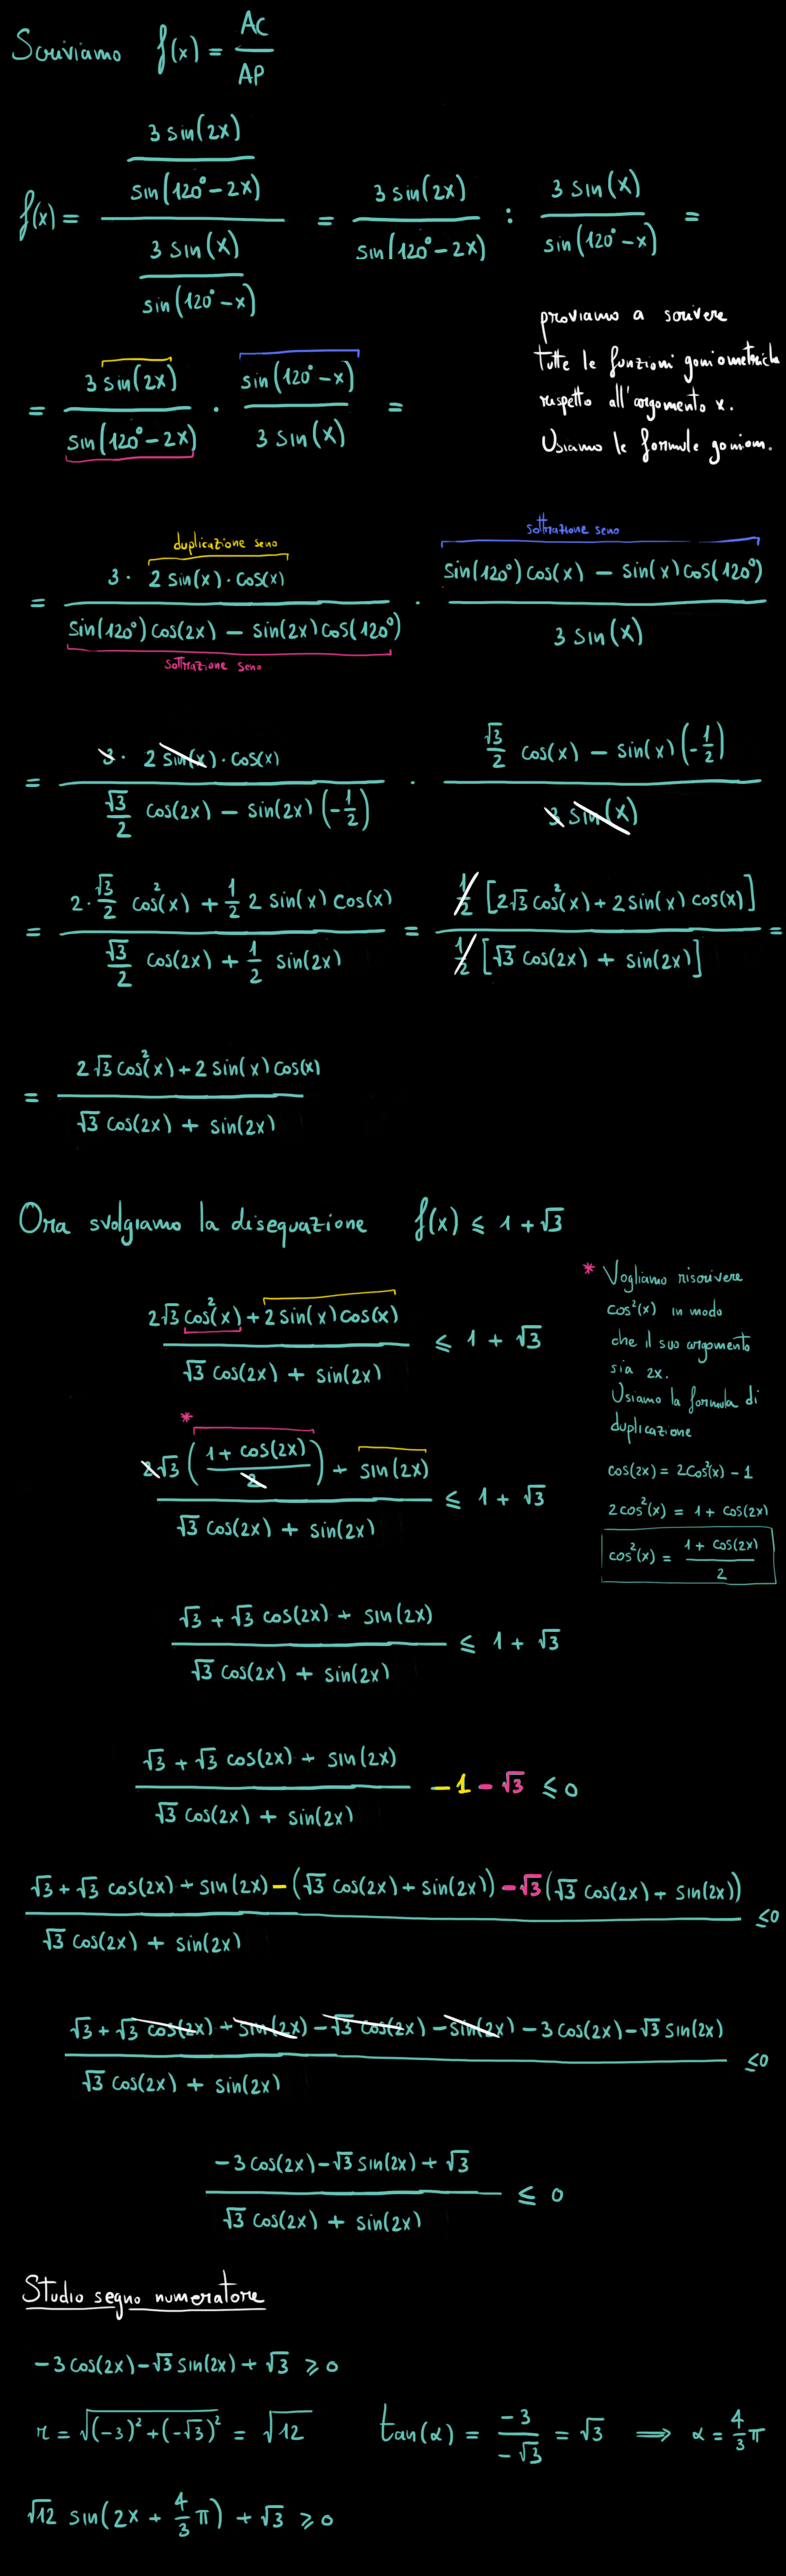 Scriviamo f(x) = AC/AP
f(x) = (3 sin(2x)/sin(120°-2x))/(3 sin(x)/sin(120°-x)) = 3 sin(2x)/sin(120°-2x) : 3 sin(x)/sin(120°-x) =
proviamo a scrivere
tutte le funzioni goniometriche
rispetto all'argomento x.
Usiamo le formule goniom.
= 3 sin(2x)/sin(120°-2x) · sin(120°-x)/3 sin(x) =
duplicazione seno
sottrazione seno
= 3 · 2 sin(x) · cos(x)/(sin(120°) cos(2x) - sin(2x) cos(120°)) · (sin(120°) cos(x) - sin(x) cos(120°))/3 sin(x)
sottrazione seno
= 3 · 2 sin(x) · cos(x)/(√3/2 cos(2x) - sin(2x) (-1/2)) · (√3/2 cos(x) - sin(x) (-1/2))/3 sin(x)
= (2 · √3/2 cos²(x) + 1/2 2 sin(x) cos(x))/(√3/2 cos(2x) + 1/2 sin(2x)) = 1/2 [2√3 cos²(x) + 2 sin(x) cos(x)]/1/2 [√3 cos(2x) + sin(2x)] =
= (2√3 cos²(x) + 2 sin(x) cos(x))/(√3 cos(2x) + sin(2x))
Ora svolgiamo la disequazione f(x) ⩽ 1 + √3
* Vogliamo riscrivere
cos²(x) in modo
che il suo argomento
sia 2x.
Usiamo la formula di
duplicazione
cos(2x) = 2cos²(x) - 1
2cos²(x) = 1 + cos(2x)
cos²(x) = (1 + cos(2x))/2
(2√3 cos²(x) + 2 sin(x) cos(x))/(√3 cos(2x) + sin(2x)) ⩽ 1 + √3
*
(2√3 ((1 + cos(2x))/2) + sin(2x))/(√3 cos(2x) + sin(2x)) ⩽ 1 + √3
(√3 + √3 cos(2x) + sin(2x))/(√3 cos(2x) + sin(2x)) ⩽ 1 + √3
(√3 + √3 cos(2x) + sin(2x))/(√3 cos(2x) + sin(2x)) - 1 - √3 ⩽ 0
(√3 + √3 cos(2x) + sin(2x) - (√3 cos(2x) + sin(2x)) - √3 (√3 cos(2x) + sin(2x)))/(√3 cos(2x) + sin(2x)) ⩽ 0
(√3 + √3 cos(2x) + sin(2x) - √3 cos(2x) - sin(2x) - 3 cos(2x) - √3 sin(2x))/(√3 cos(2x) + sin(2x)) ⩽ 0
(-3 cos(2x) - √3 sin(2x) + √3)/(√3 cos(2x) + sin(2x)) ⩽ 0
Studio segno numeratore
-3 cos(2x) - √3 sin(2x) + √3 ⩾ 0
r = √((-3)² + (-√3)²) = √12 tan(α) = -3/-√3 = √3 ⟹ α = 4/3 π
√12 sin(2x + 4/3 π) + √3 ⩾ 0